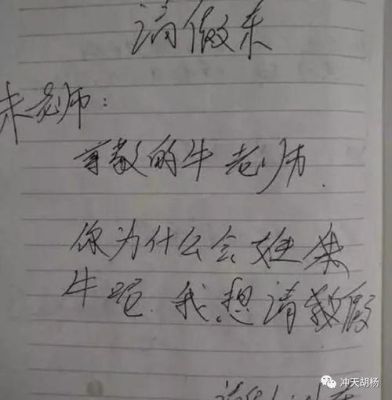 请做
朱老师：
尊敬的牛老师.
你为什么会姓朱
牛呢.我想请教假
冲天胡杨